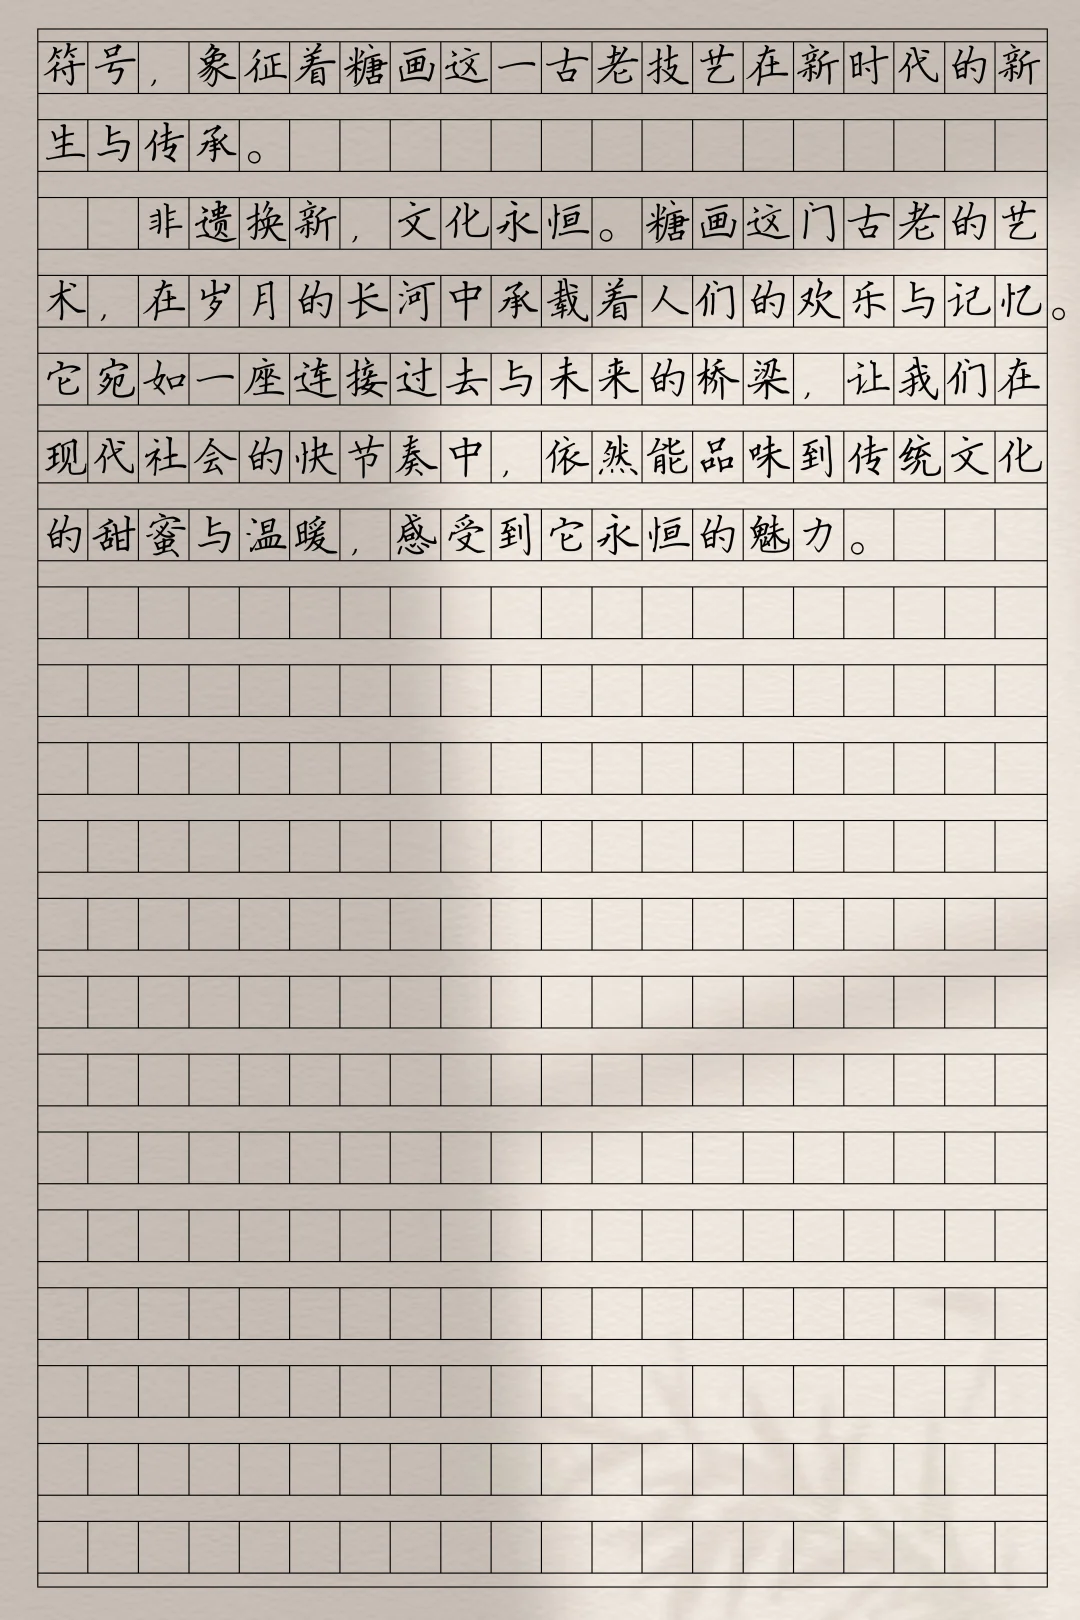 符号，象征着糖画这一古老技艺在新时代的新
生与传承。
非遗换新，文化永恒。糖画这门古老的艺
术，在岁月的长河中承载着人们的欢乐与记忆。
它宛如一座连接过去与未来的桥梁，让我们在
现代社会的快节奏中，依然能品味到传统文化
的甜蜜与温暖，感受到它永恒的魅力。